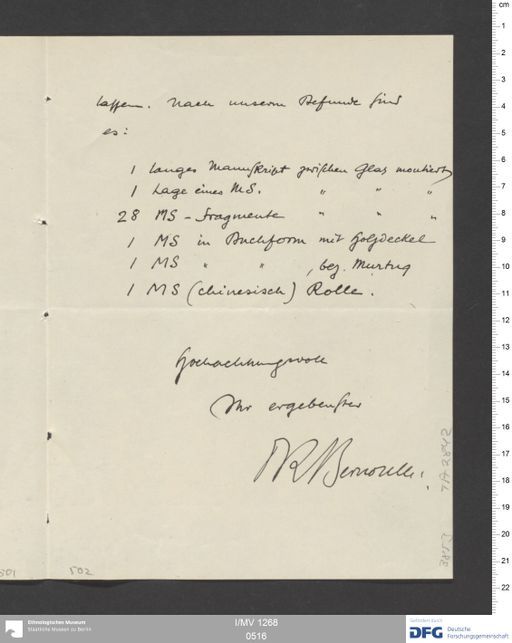 lassen. Nach unserm Befunde sind
es:
1 langes Manuskript zwischen Glas montiert
1 Lage eines MS. " " "
28 MS - Fragmente " " "
1 MS in Buchform mit Holzdeckel
1 MS " " , bez. Murtuq
1 MS (chinesisch) Rolle.
Hochachtungsvoll
Ihr ergebenster
R Bernoulli.
501 502
Ethnologisches Museum
Staatliche Museen zu Berlin
I/MV 1268
0516
Gefördert durch
DFG Deutsche
Forschungsgemeinschaft
cm
1
2
3
4
5
6
7
8
9
10
11
12
13
14
15
16
17
18
19
20
21
22